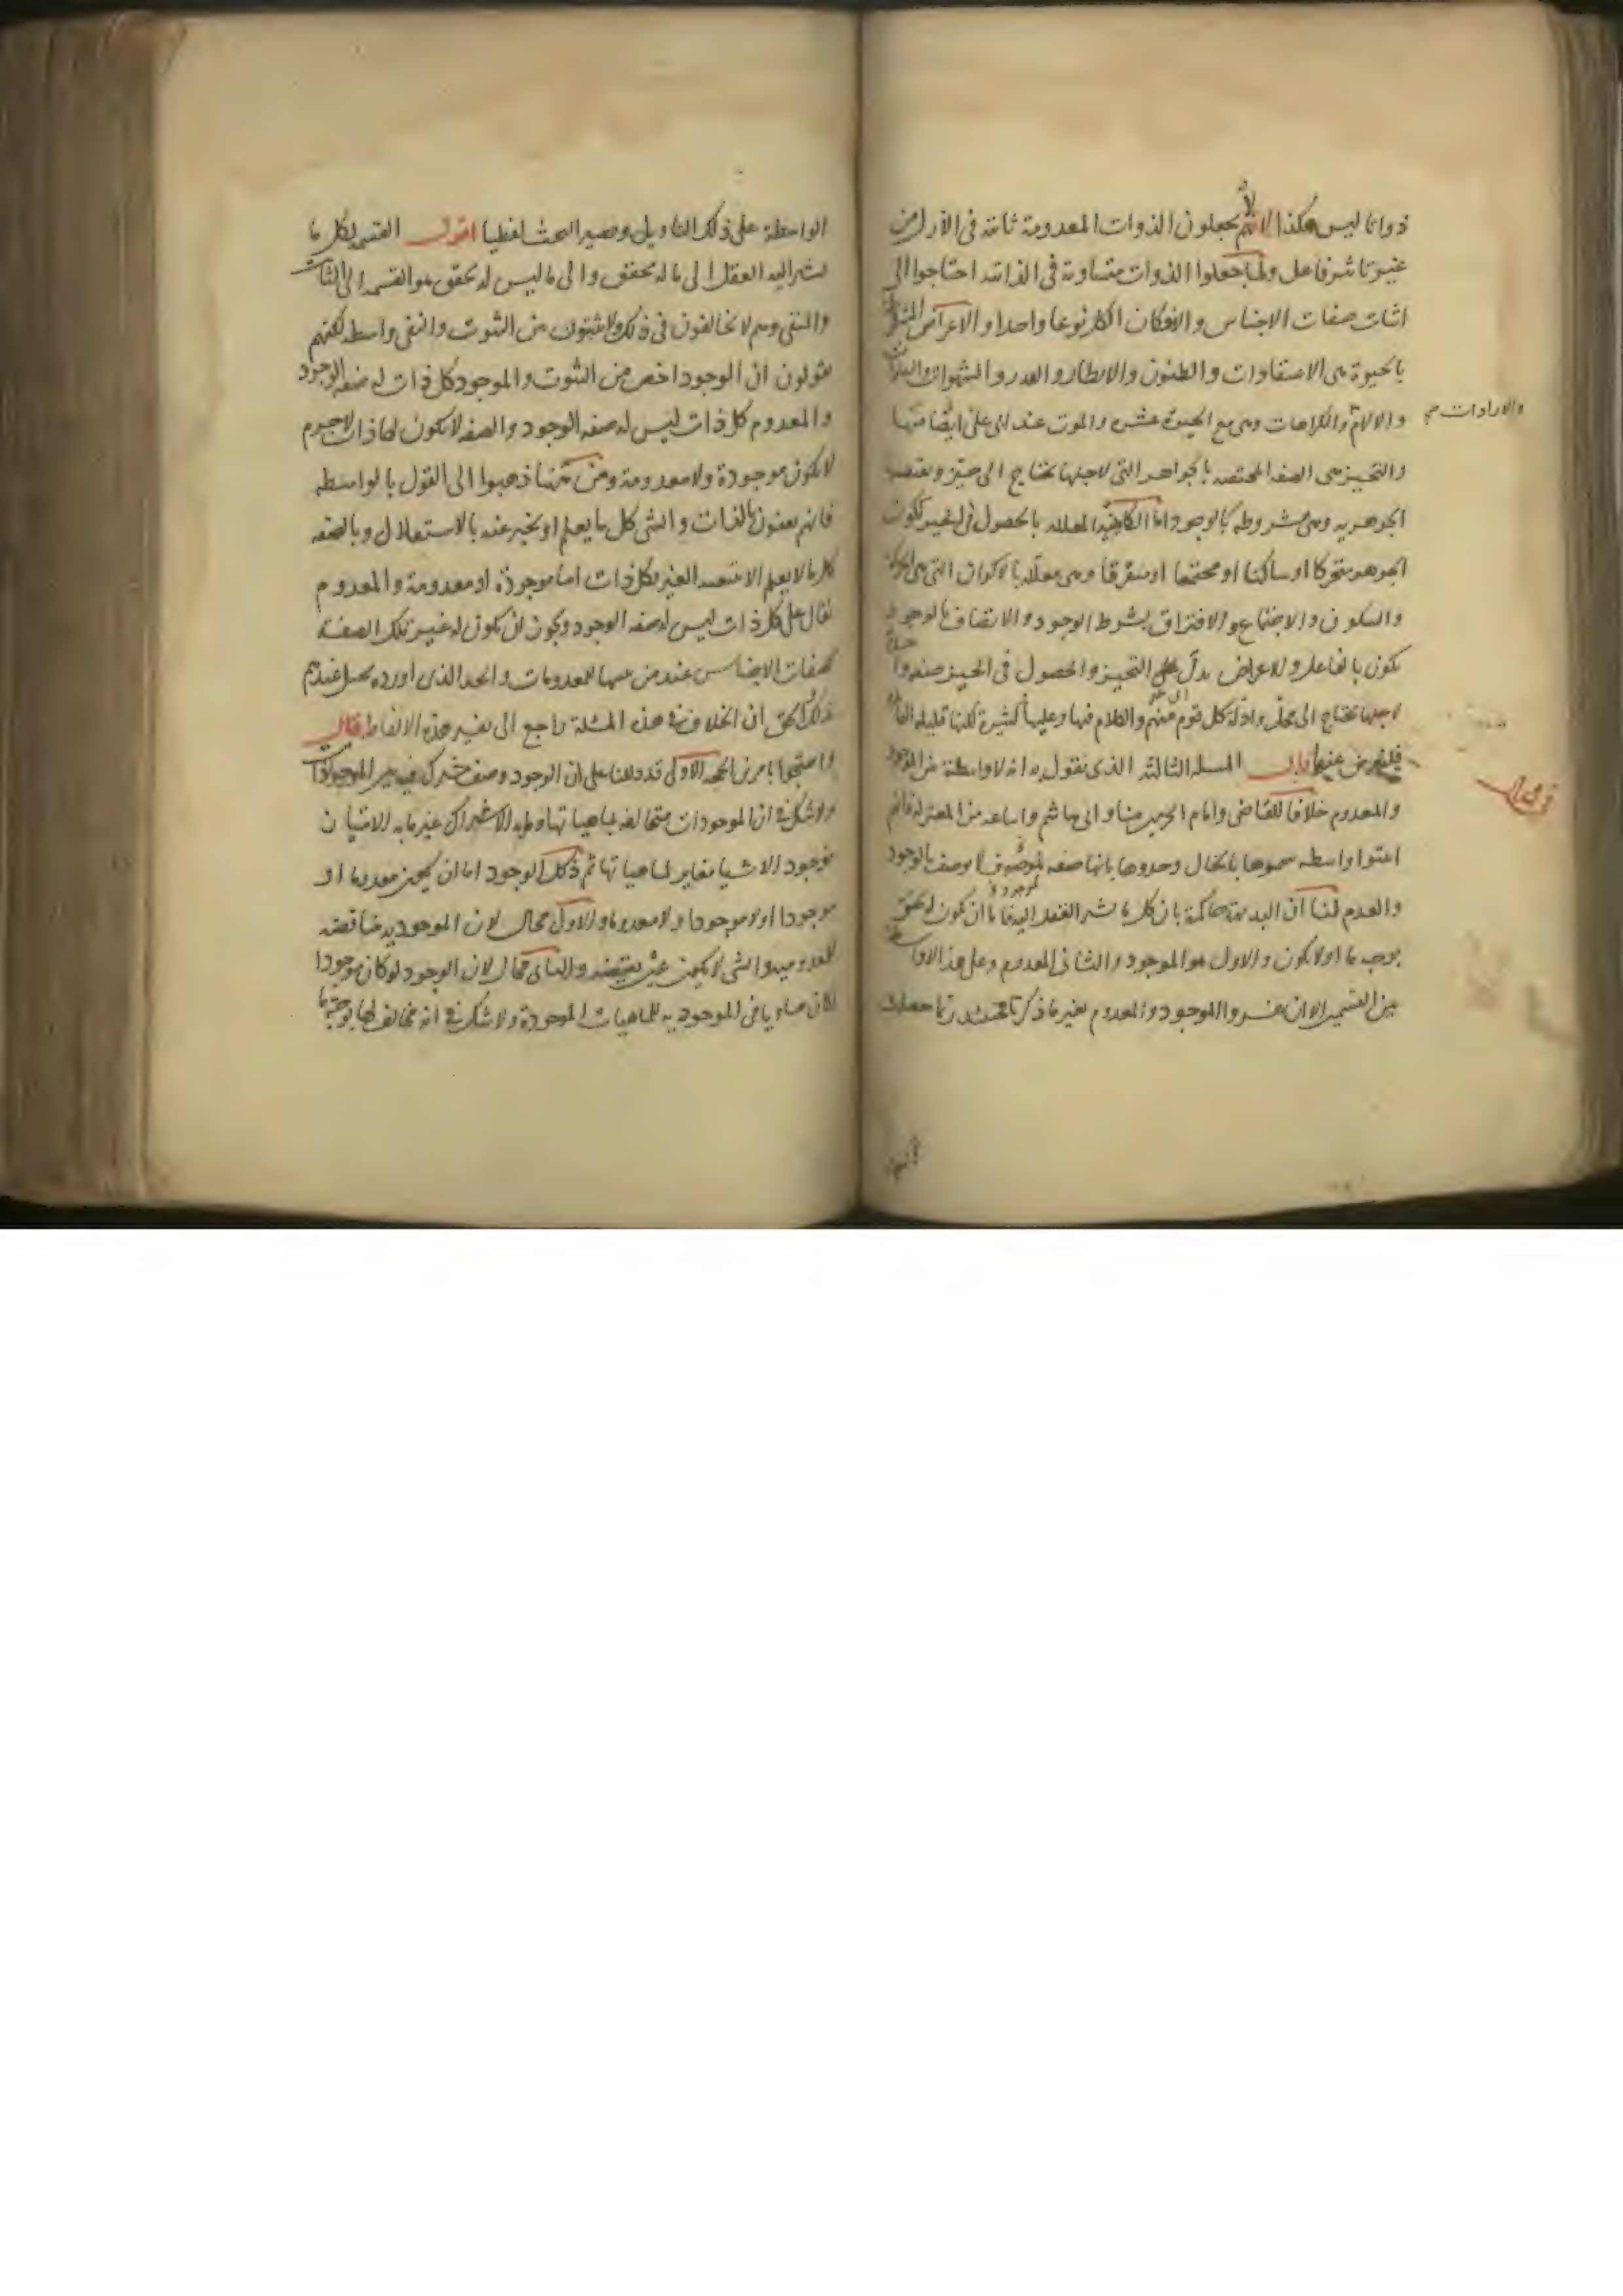 ذواتا ليس هكذا لانهم يجعلون الذوات المعدومة ثابتة فى الازل من
غير تاثير فاعل ولما جعلوا الذوات متساوية فى الذاتية احتاجوا الى
اثبات صفات الاجناس والا لكان الكل نوعا واحدا و الاعراض المشروطة
بالحيوة هى الاعتقادات والظنون والانظار و القدر و الشهوات
والالام والكراهات وهى مع الحيوة عشرة والموت عند ابى على ايضا منها
والارادات صح
والتحيز هى الصفة المختصة بالجواهر التى لاجلها يحتاج الى حيز
الجوهرية وهى مشروطة بالوجود اما الكائنية المعللة بالحصول فى الحيز ككون
الجوهر متحركا او ساكنا او مجتمعا او متفرقا وهى معللة بالاكوان التى هى
والسكون والاجتماع والافتراق بشرط الوجود والاتصاف بالوجود
يكون بالفاعل وللاعراض بدل التحيز والحصول فى الحيز صفة
لاجلها يحتاج الى محل وادلة كل قوم منهم والكلام فيها وعليها كثيرة لكنها قليلة
فليعرض عنها قال المسئلة الثالثة الذى نقول به انه لا واسطة بين الموجود
والمعدوم خلافا للقاضى وامام الحرمين منا و ابى هاشم واتباعه من المعتزلة فانهم
اثبتوا واسطة سموها بالحال وحدوها بانها صفة لموجود لا يوصف بالوجود
والعدم لنا ان البديهة حاكمة بان كل ما يشير العقل اليه فاما ان يكون له تحقق
بوجه ما او لا يكون والاول هو الموجود والثانى المعدوم وعلى هذا لا واسطة
بين القسمين الا ان يفسروا الموجود والمعدوم بغير ما ذكرنا فحينئذ ربما حصلت
الواسطة على ذلك التاويل ويصير البحث لفظيا اقول القسمة لكل ما
يشير اليه العقل الى ما له تحقق والى ما ليس له تحقق هو القسمة الى الثابت
والمنفى وهم لا يخالفون فى ذلك ولا يثبتون بين الثبوت والنفى واسطة لكنهم
يقولون ان الوجود اخص من الثبوت والموجود كل ذات له صفة الوجود
والمعدوم كل ذات ليس له صفة الوجود والصفة لا يكون لها ذات لاجرم
لا يكون موجودة ولا معدومة ومن هنا ذهبوا الى القول بالواسطة
فانهم يعنون بالذات والشى كل ما يعلم او يخبر عنه بالاستقلال وبالصفة
كل ما لا يعلم الا بتبعية الغير فكل ذات اما موجودة او معدومة والمعدوم
يقال على كل ذات ليس له صفة الوجود ويجوز ان يكون له غير تلك الصفة
كصفات الاجناس عند من للمعدومات والحد الذى اورده عندهم
ذلك الحق ان الخلاف فى هذه المسئلة راجع الى تفسير هذه الالفاظ قال
واحتجوا بامرين الحجة الاولى قد دللنا على ان الوجود وصف مشترك فيه بين الموجودات
ولا شك فى ان الموجودات متخالفة بماهياتها وما به الاشتراك غير ما به الامتياز
فوجود الاشيا مغاير لماهياتها ثم ذلك الوجود اما ان يكون معدوما او
موجودا او لا موجودا ولا معدوما والاول محال لان الموجودية مناقضة
للمعدومية والشى لا يكون عين نقيضه والثانى محال لان الوجود لو كان موجودا
لكان مساويا فى الموجودية للماهيات الموجودة ولا شك فى انه مخالف لها بوجه ما